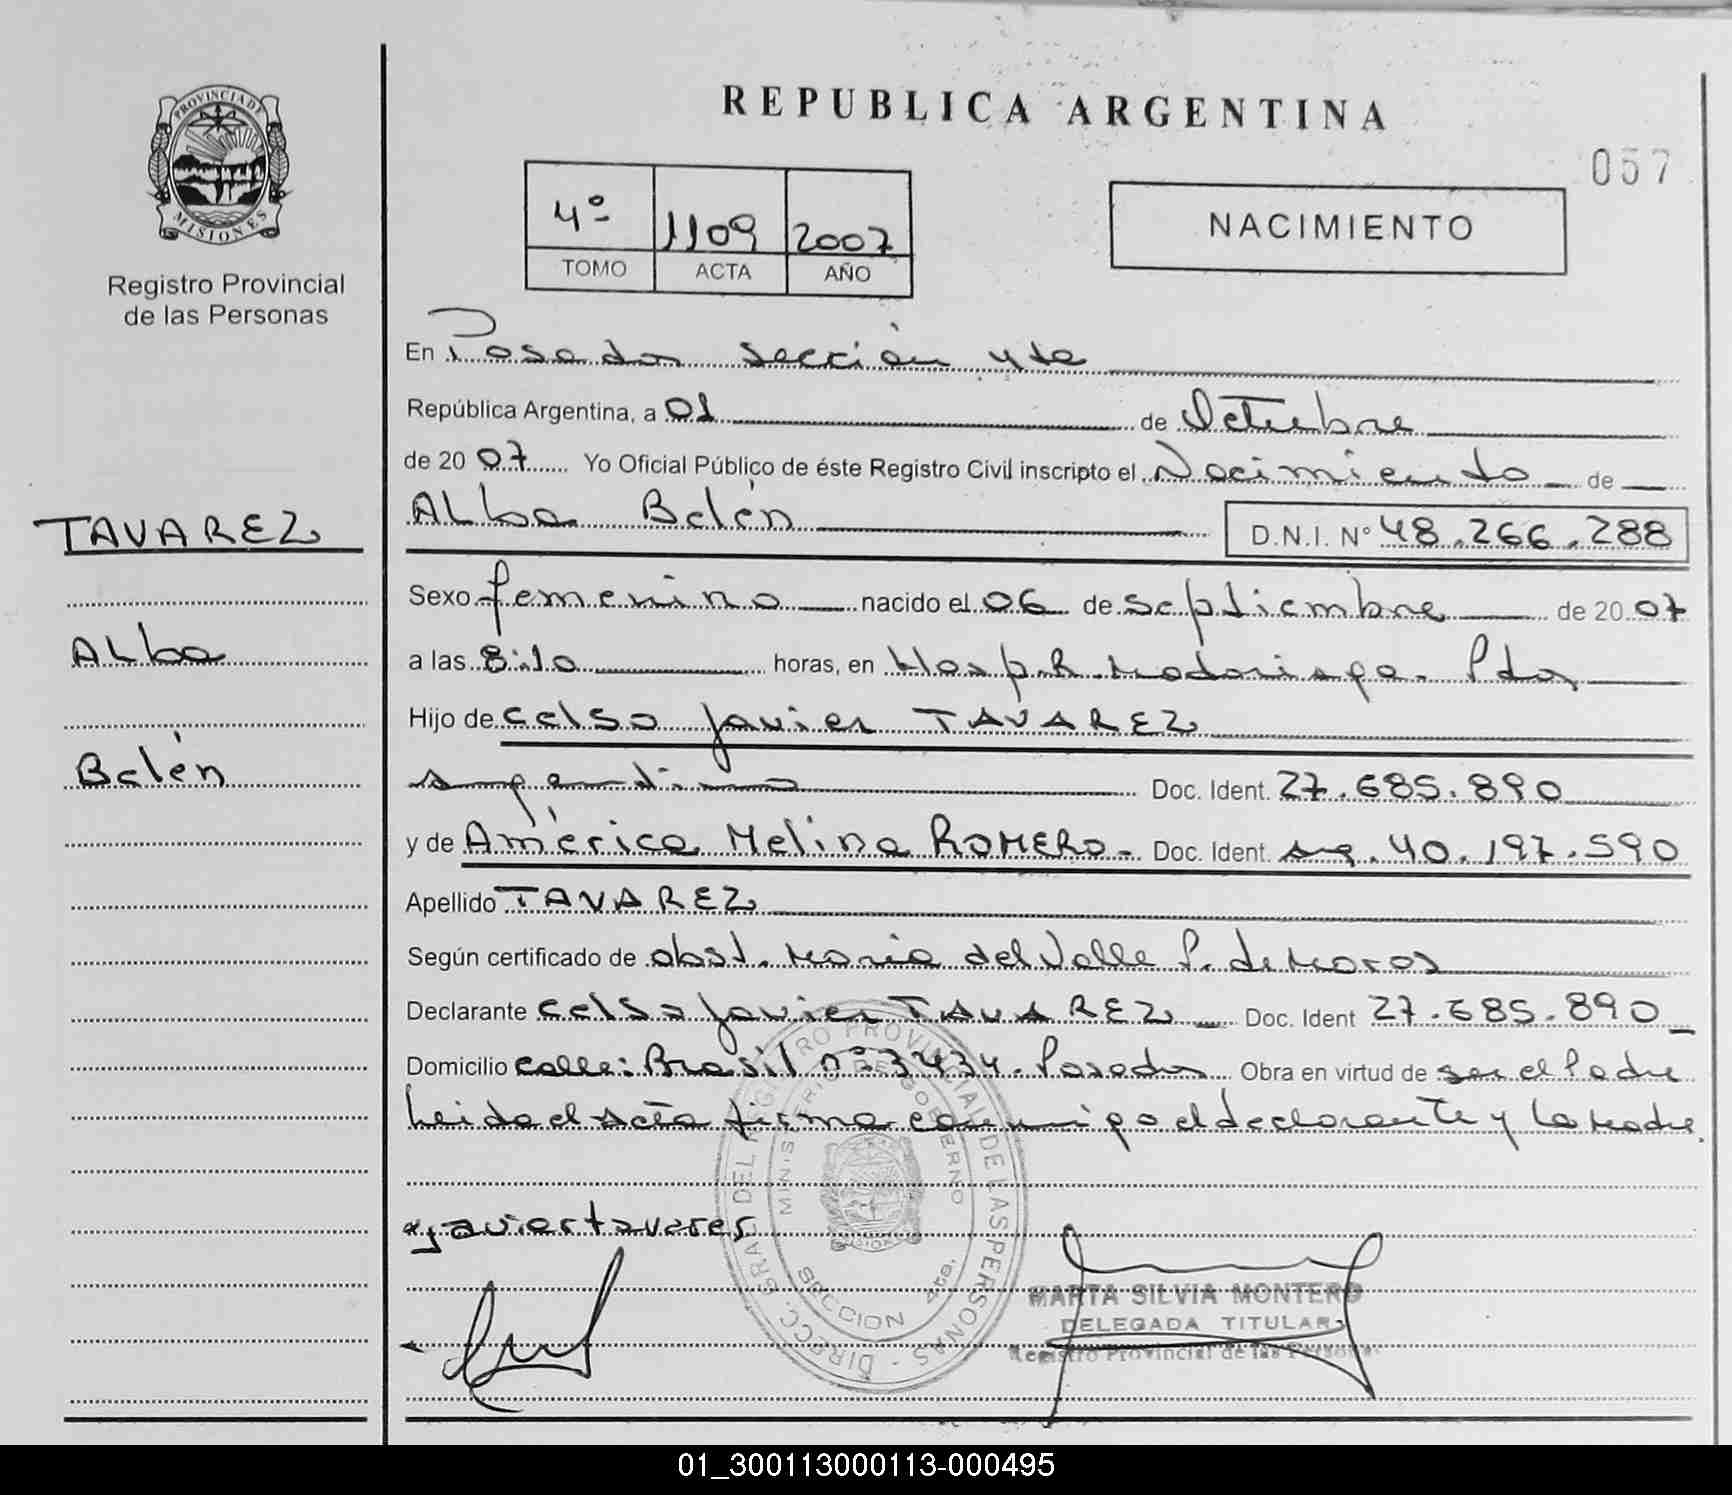 PROVINCIA DE
MISIONES
Registro Provincial
de las Personas
TAVAREZ
Alba
Belén
REPUBLICA ARGENTINA
057
4º 1109 2007
TOMO ACTA AÑO
NACIMIENTO
En Posadas sección 4ta
República Argentina, a 01 de Octubre
de 2007 Yo Oficial Público de éste Registro Civil inscripto el Nacimiento de
Alba Belén D.N.I. Nº 48.266.288
Sexo femenino nacido el 06 de septiembre de 2007
a las 8:10 horas, en Hosp. R. Madariaga. Pdas
Hijo de Celso Javier TAVAREZ
argentino Doc. Ident. 27.685.890
y de América Melina ROMERO. Doc. Ident. arg. 40.197.590
Apellido TAVAREZ
Según certificado de obst. María del Valle P. de Moros
Declarante Celso Javier TAVAREZ Doc. Ident 27.685.890
Domicilio calle: Brasil nº 3434. Posadas Obra en virtud de ser el Padre
Leida el Acta firma conmigo el declarante y la Madre.
javier tavares
DIRECC. GRAL. DEL REGISTRO PROVINCIAL DE LAS PERSONAS
MINISTERIO DE GOBIERNO
MISIONES
SECCION 4ta.
MARTA SILVIA MONTERO
DELEGADA TITULAR
Registro Provincial de las Personas
01_300113000113-000495